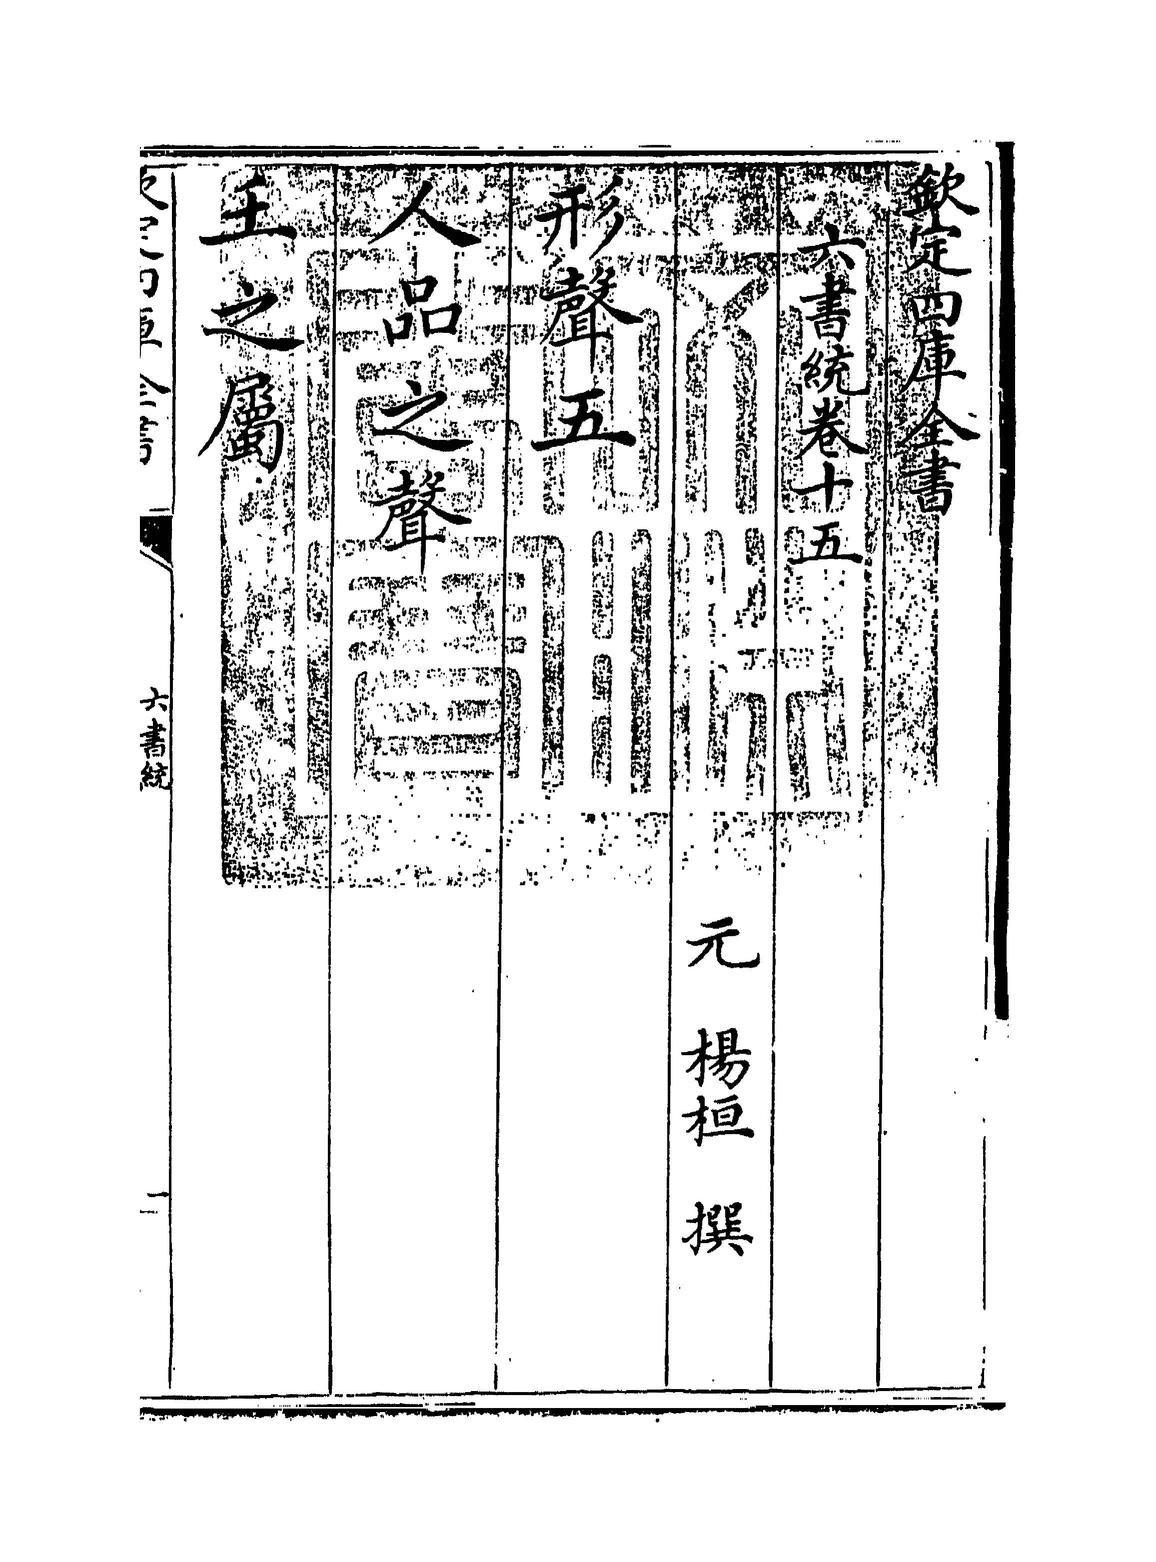 欽定四庫全書
六書統卷十五
元 楊桓 撰
形聲五
人品之聲
𡈼之屬
欽定四庫全書
六書統
一